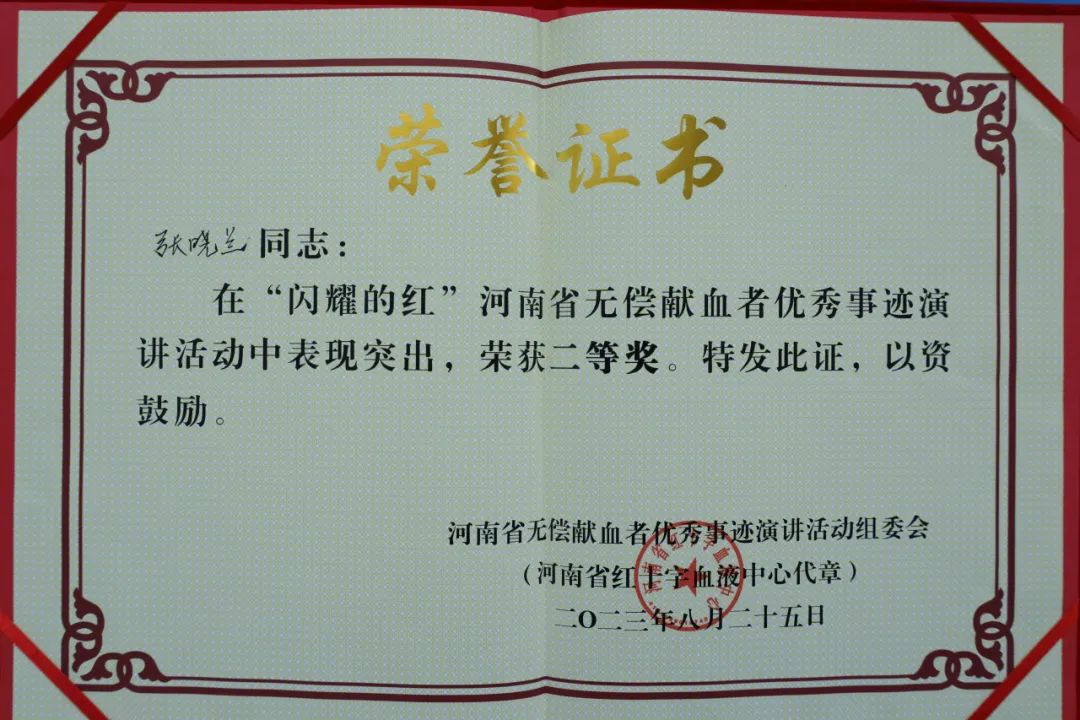 荣誉证书
张晓兰同志：
在“闪耀的红”河南省无偿献血者优秀事迹演
讲活动中表现突出，荣获二等奖。特发此证，以资
鼓励。
河南省无偿献血者优秀事迹演讲活动组委会
（河南省红十字血液中心代章）
二〇二三年八月二十五日
河南省红十字血液中心